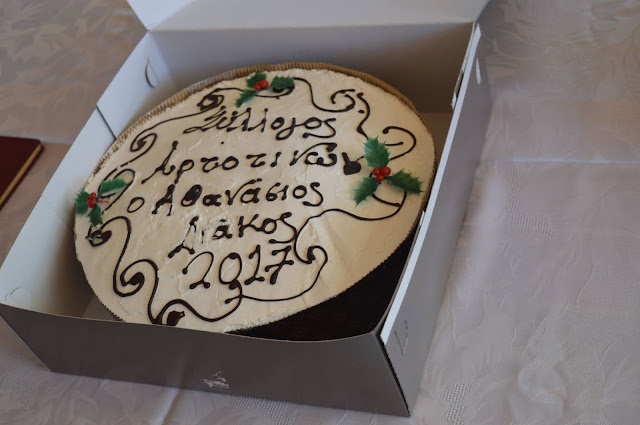 Σύλλογος
Αρτοτινών
ο Αθανάσιος
Διάκος
2017